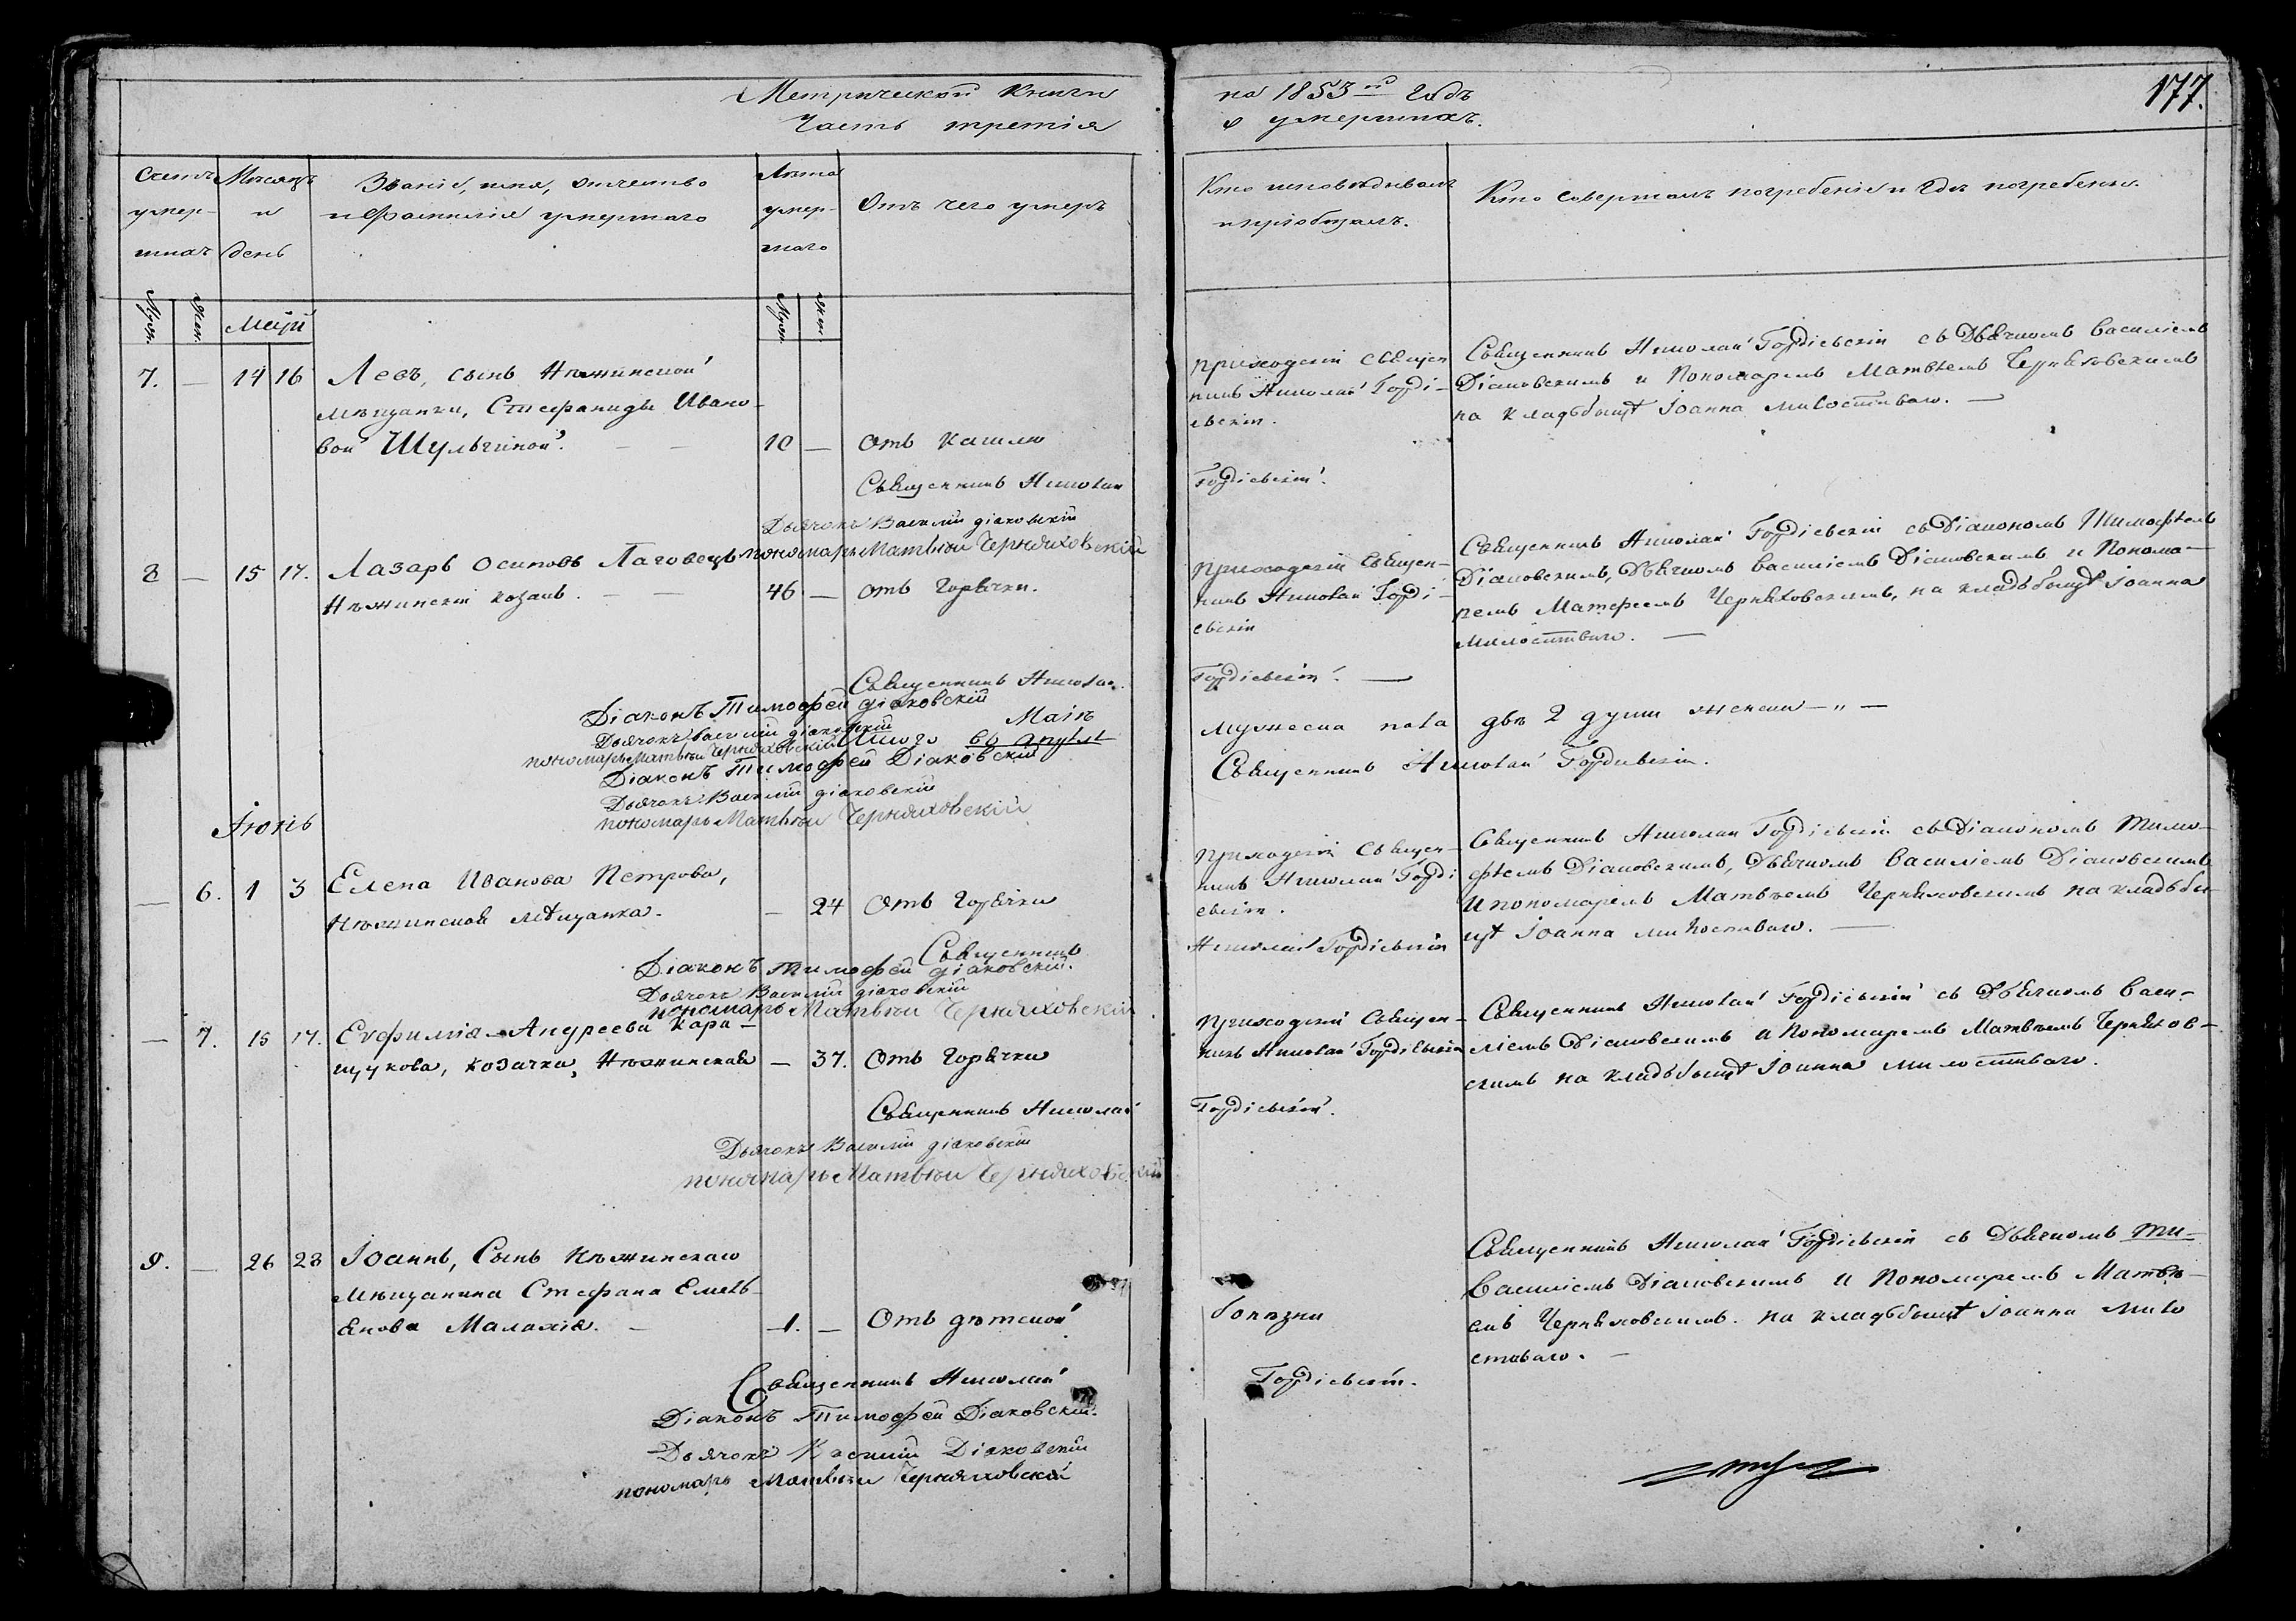 Метрической Книги на 1853й Годъ
Часть третія о умершихъ.
177.
Счетъ умер- шихъ
Мѣсяцъ и день
Званіе, имя, отчество и Фамилія умершаго
Лѣта умер- шаго
Отъ чего умеръ
Кто исповѣдывалъ и пріобщалъ.
Кто совершалъ погребеніе и гдѣ погребены.
Муж. Жен. Маій Муж. Жен.
7. — 14 16 Левъ, сынъ Нѣжинской
мѣщанки, Стефаниды Ивано-
вой Шульгиной. — —
10 — Отъ кашлю
Приходскій Священ
никъ Николай Горді-
евскій.
Священникъ Николай Гордіевскій съ Дьячкомъ Василіемъ
Діаковскимъ и Пономаремъ Матвѣемъ Черняховскимъ
на кладьбищѣ Іоанна Милостиваго. —
Священникъ Николай Гордіевскій.
Дьячокъ Василій Діаковскій
пономарь Матвѣй Черняховскій
8 — 15 17. Лазарь Осиповъ
Нѣжинскій козакъ. — —
46 — отъ Горячки.
Приходскій Священ-
никъ Николай Горді-
евскій
Священникъ Николай Гордіевскій съ Діакономъ Тимофѣемъ
Діаковскимъ, Дьячкомъ Василіемъ Діаковскимъ и Понома-
ремъ Матфеемъ Черняховскимъ, на кладьбищѣ Іоанна
Милостиваго. —
Священникъ Николай Гордіевскій. —
Діаконъ Тимофей Діаковскій
Дьячокъ Василій Діаковскій
пономарь Матвѣй Черняховскій
Маіѣ
Итого во Апрѣлѣ мужеска пола двѣ 2 души женска — „ —
Священникъ Николай Гордіевскій.
Діаконъ Тимофей Діаковскій
Дьячокъ Василій Діаковскій
пономарь Матвѣй Черняховскій
Іюнь
— 6. 1 3 Елена Иванова Петрова,
Нѣжинская мѣщанка.
— 24 Отъ Горячки
Приходскій Священ-
никъ Николай Горді
евскій.
Священникъ Николай Гордіевскій съ Діакономъ Тимо-
фѣемъ Діаковскимъ, Дьячкомъ Василіемъ Діаковскимъ
и пономаремъ Матвѣемъ Черняховскимъ на кладьби-
щѣ Іоанна Милостиваго. —
Священникъ Николай Гордіевскій
Діаконъ Тимофей Діаковскій.
Дьячокъ Василій Діаковскій
пономарь Матвѣй Черняховскій
— 7. 15 17. Евфимія Андреева Кара-
щукова, козачка, Нѣжинская
— 37. Отъ Горячки
Приходскій Священ-
никъ Николай Гордіевскій
Священникъ Николай Гордіевскій съ Дьячкомъ Васи-
ліемъ Діаковскимъ и Пономаремъ Матвѣемъ Черняхов-
скимъ на кладьбищѣ Іоанна Милостиваго.
Священникъ Николай Гордіевскій.
Дьячокъ Василій Діаковскій
пономарь Матвѣй Черняховскій
9. — 26 28 Іоаннъ, Сынъ Нѣжинскаго
Мѣщанина Стефана Емель-
янова Малахія. —
1. — Отъ дѣтской болѣзни
Священникъ Николай Гордіевскій съ Дьячкомъ Ти-
Василіемъ Діаковскимъ и Пономаремъ Матвѣ-
емъ Черняховскимъ. на кладьбищѣ Іоанна Мило
стиваго. —
Священникъ Николай Гордіевскій.
Діаконъ Тимофей Діаковскій.
Дьячокъ Василій Діаковскій
пономарь Матвѣй Черняховскій